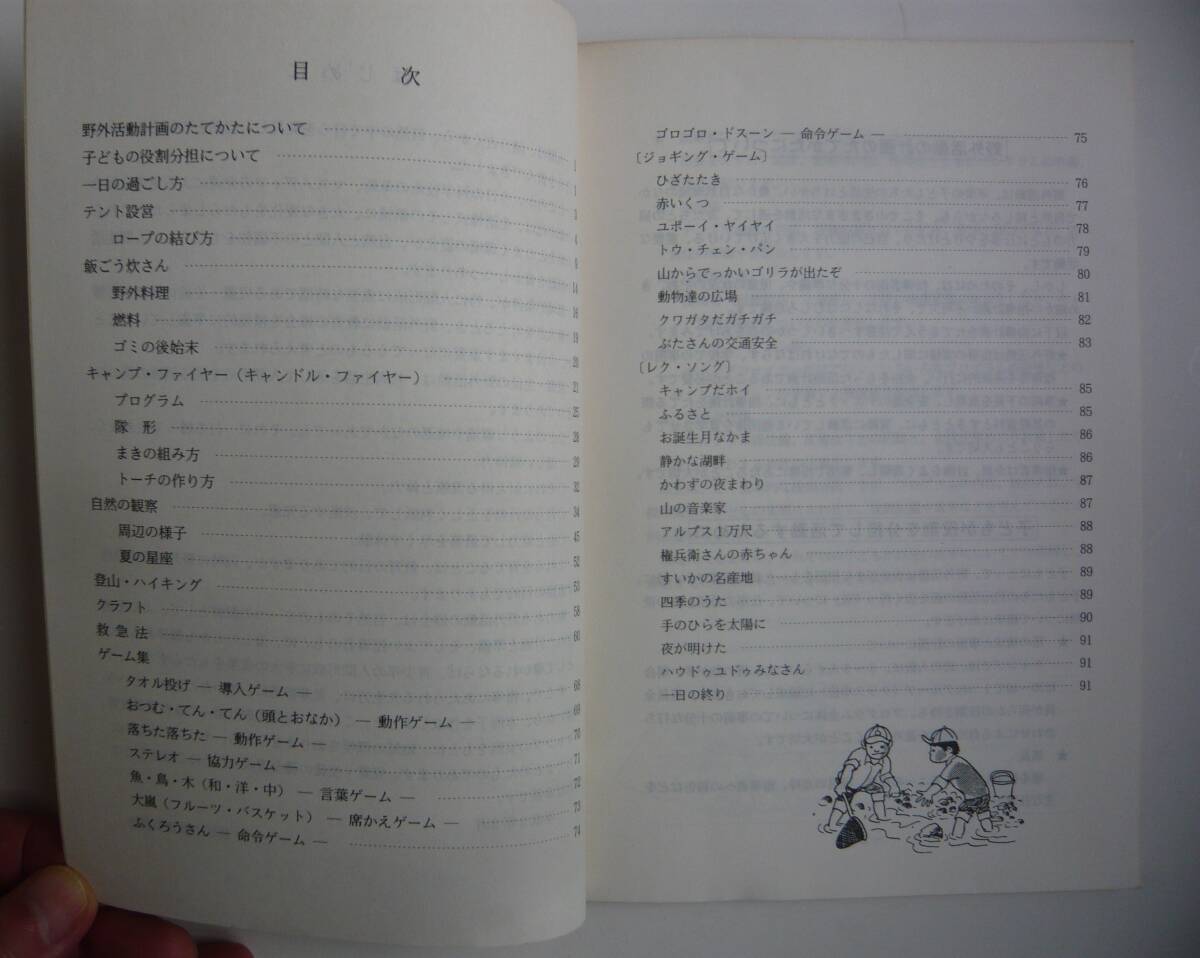 目次
野外活動計画のたてかたについて
子どもの役割分担について 1
一日の過ごし方 1
テント設営 3
ロープの結び方 4
飯ごう炊さん 9
野外料理 14
燃料 16
ゴミの後始末 19
キャンプ・ファイヤー（キャンドル・ファイヤー） 20
プログラム 21
隊形 25
まきの組み方 28
トーチの作り方 29
自然の観察 32
周辺の様子 34
夏の星座 45
登山・ハイキング 52
クラフト 53
救急法 58
ゲーム集 60
タオル投げ ― 導入ゲーム ― 68
おつむ・てん・てん（頭とおなか） ― 動作ゲーム ― 69
落ちた落ちた ― 動作ゲーム ― 70
ステレオ ― 協力ゲーム ― 71
魚・鳥・木（和・洋・中） ― 言葉ゲーム ― 72
大嵐（フルーツ・バスケット） ― 席かえゲーム ― 73
ふくろうさん ― 命令ゲーム ― 74
ゴロゴロ・ドスーン ― 命令ゲーム ― 75
〔ジョギング・ゲーム〕
ひざたたき 76
赤いくつ 77
ユポーイ・ヤイヤイ 78
トウ・チェン・パン 79
山からでっかいゴリラが出たぞ 80
動物達の広場 81
クワガタだガチガチ 82
ぶたさんの交通安全 83
〔レク・ソング〕
キャンプだホイ 85
ふるさと 85
お誕生月なかま 86
静かな湖畔 86
かわずの夜まわり 87
山の音楽家 87
アルプス1万尺 88
権兵衛さんの赤ちゃん 88
すいかの名産地 89
四季のうた 89
手のひらを太陽に 90
夜が明けた 91
ハウドゥユドゥみなさん 91
一日の終り 91